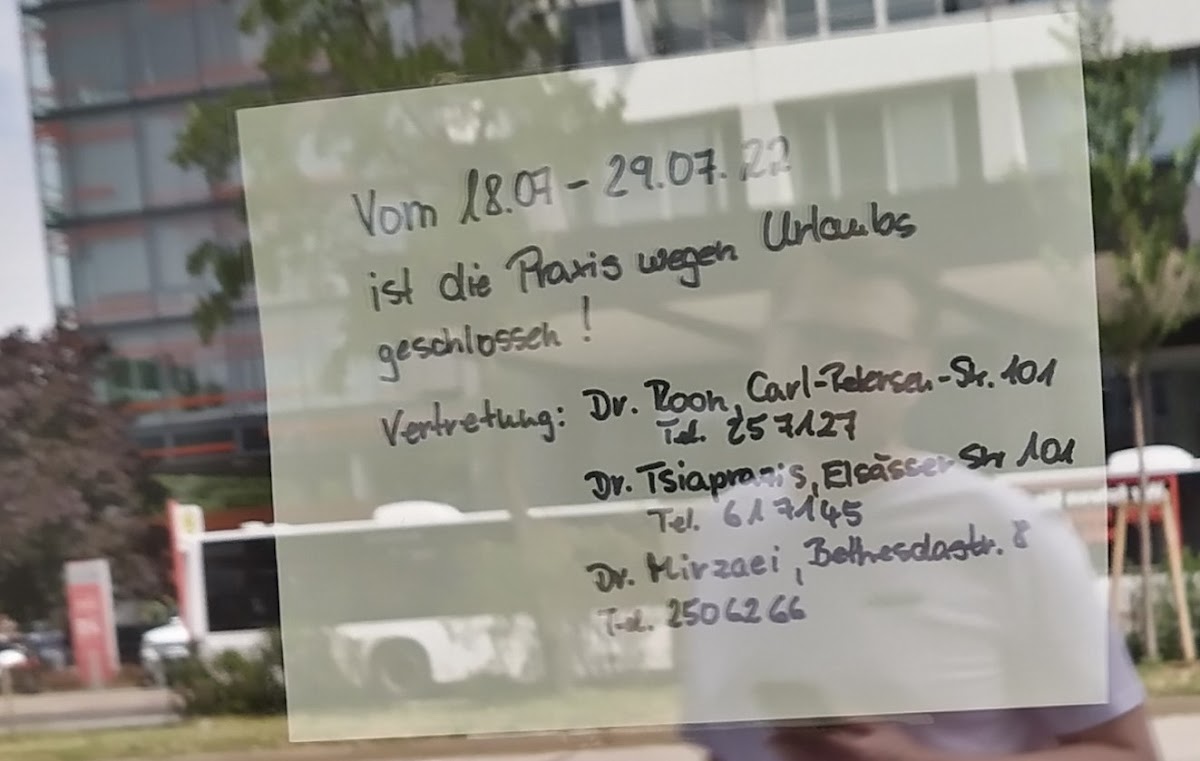 Vom 18.07 - 29.07.22
ist die Praxis wegen Urlaubs
geschlossen !
Vertretung: Dr. Rooh, Carl-Petersen-Str. 101
Tel. 257127
Dr. Tsiapraxis, Elsässer Str 101
Tel. 617145
Dr. Mirzaei, Bethesdastr. 8
Tel. 2506266